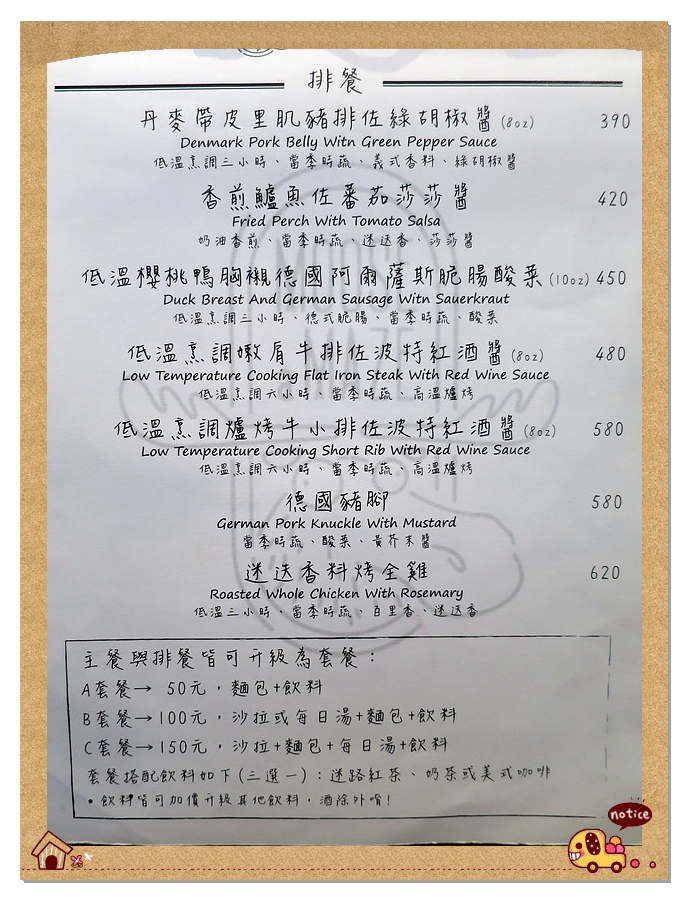 排餐
丹麥帶皮里肌豬排佐綠胡椒醬(8oz) 390
Denmark Pork Belly Witn Green Pepper Sauce
低溫烹調三小時、當季時蔬、義式香料、綠胡椒醬
香煎鱸魚佐蕃茄莎莎醬 420
Fried Perch With Tomato Salsa
奶油香煎、當季時蔬、迷迭香、莎莎醬
低溫櫻桃鴨胸襯德國阿爾薩斯脆腸酸菜(10oz) 450
Duck Breast And German Sausage Witn Sauerkraut
低溫烹調三小時、德式脆腸、當季時蔬、酸菜
低溫烹調嫩肩牛排佐波特紅酒醬(8oz) 480
Low Temperature Cooking Flat Iron Steak With Red Wine Sauce
低溫烹調六小時、當季時蔬、高溫爐烤
低溫烹調爐烤牛小排佐波特紅酒醬(8oz) 580
Low Temperature Cooking Short Rib With Red Wine Sauce
低溫烹調六小時、當季時蔬、高溫爐烤
德國豬腳 580
German Pork Knuckle With Mustard
當季時蔬、酸菜、黃芥末醬
迷迭香料烤全雞 620
Roasted Whole Chicken With Rosemary
低溫三小時、當季時蔬、百里香、迷迭香
主餐與排餐皆可升級為套餐：
A套餐→ 50元，麵包+飲料
B套餐→100元，沙拉或每日湯+麵包+飲料
C套餐→150元，沙拉+麵包+每日湯+飲料
套餐搭配飲料如下(三選一)：迷路紅茶、奶茶或美式咖啡
•飲料皆可加價升級其他飲料，酒除外唷!
notice